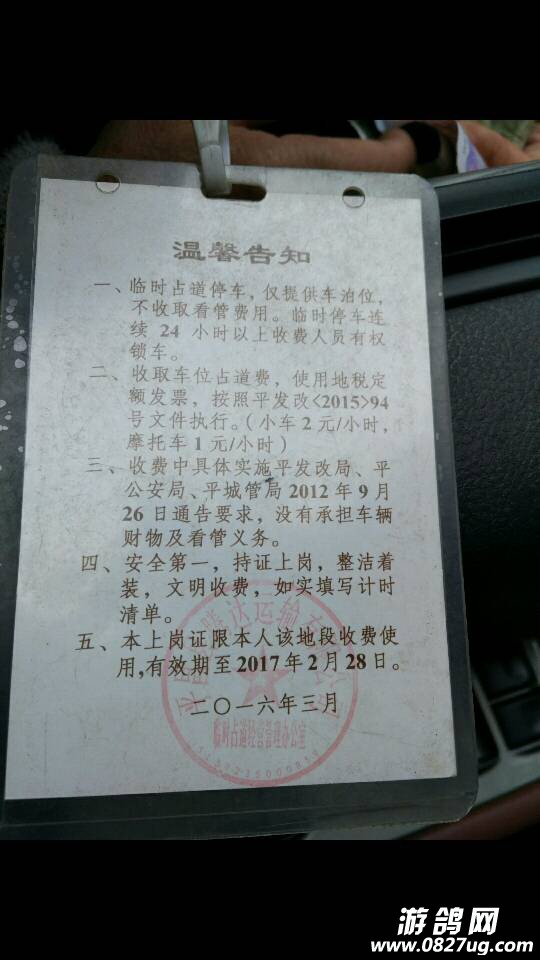 温馨告知
一、临时占道停车，仅提供车泊位，
不收取看管费用。临时停车连
续 24 小时以上收费人员有权
锁车。
二、收取车位占道费，使用地税定
额发票，按照平发改<2015>94
号文件执行。（小车 2 元/小时，
摩托车 1 元/小时）
三、收费中具体实施平发改局、平
公安局、平城管局 2012 年 9 月
26 日通告要求，没有承担车辆
财物及看管义务。
四、安全第一，持证上岗，整洁着
装，文明收费，如实填写计时
清单。
五、本上岗证限本人该地段收费使
用,有效期至 2017 年 2 月 28 日。
二〇一六年三月
达运输
临时占道经营管理办公室
游鸽网
www.0827ug.com